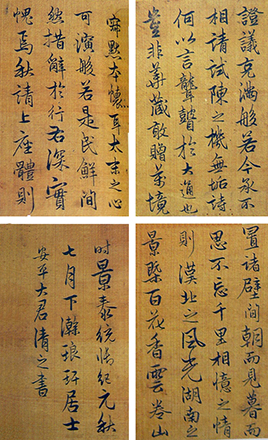 證議充滿般若今承不
相請試陳之機無垢詩
何以言聾瞽於大通也
豈非華藏敢贈萊境
寂黙本懷耳太宗之心
可演般若是民鮮聞
然措辭於行君深實
愧焉秋請上座體則
冒諸壁間朝而見暮而
思不忘千里相憶之情
則漠北之風光湖南之
景槩百花香雲卷山
時景泰紀元秋
七月下澣琅玕居士
安平大君清之書